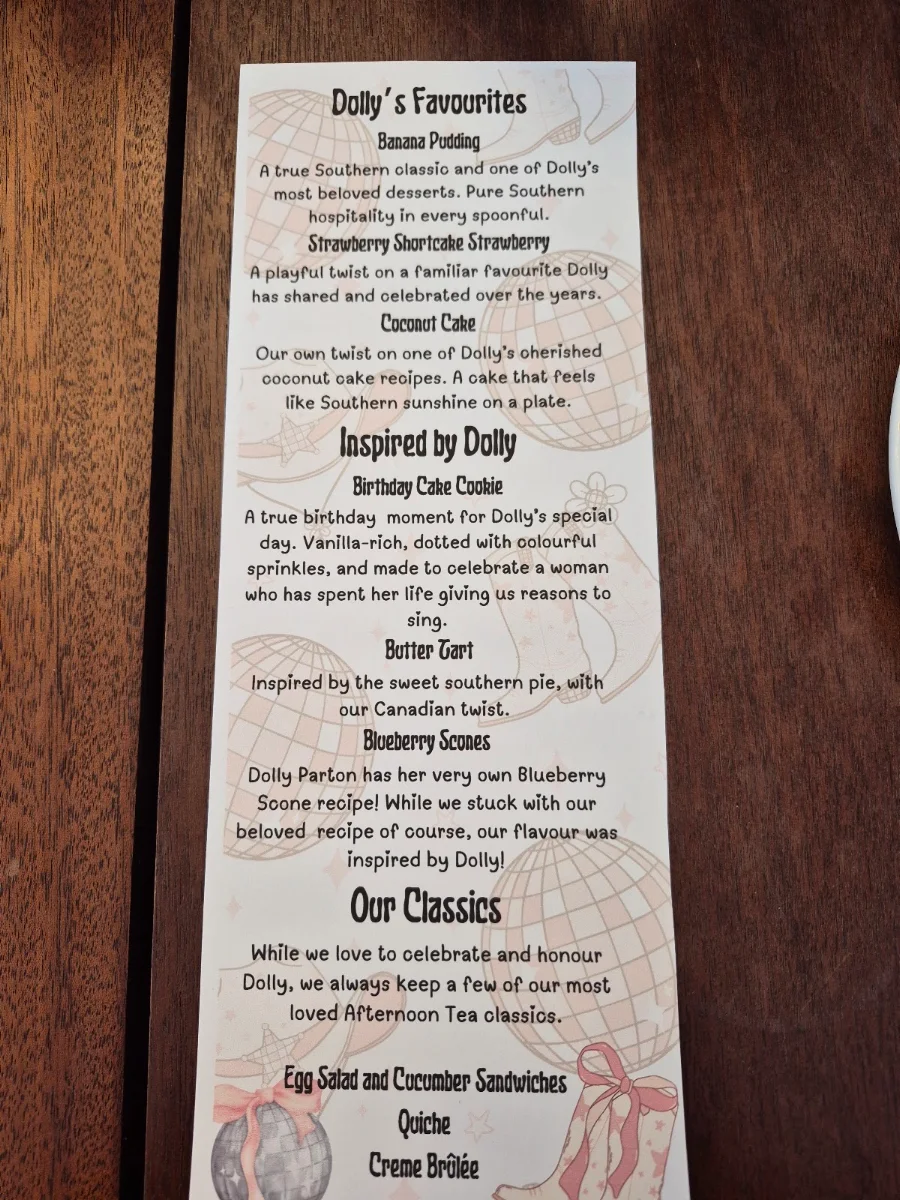 Dolly's Favourites
Banana Pudding
A true Southern classic and one of Dolly's
most beloved desserts. Pure Southern
hospitality in every spoonful.
Strawberry Shortcake Strawberry
A playful twist on a familiar favourite Dolly
has shared and celebrated over the years.
Coconut Cake
Our own twist on one of Dolly's cherished
coconut cake recipes. A cake that feels
like Southern sunshine on a plate.
Inspired by Dolly
Birthday Cake Cookie
A true birthday moment for Dolly's special
day. Vanilla-rich, dotted with colourful
sprinkles, and made to celebrate a woman
who has spent her life giving us reasons to
sing.
Butter Tart
Inspired by the sweet southern pie, with
our Canadian twist.
Blueberry Scones
Dolly Parton has her very own Blueberry
Scone recipe! While we stuck with our
beloved recipe of course, our flavour was
inspired by Dolly!
Our Classics
While we love to celebrate and honour
Dolly, we always keep a few of our most
loved Afternoon Tea classics.
Egg Salad and Cucumber Sandwiches
Quiche
Creme Brûlée